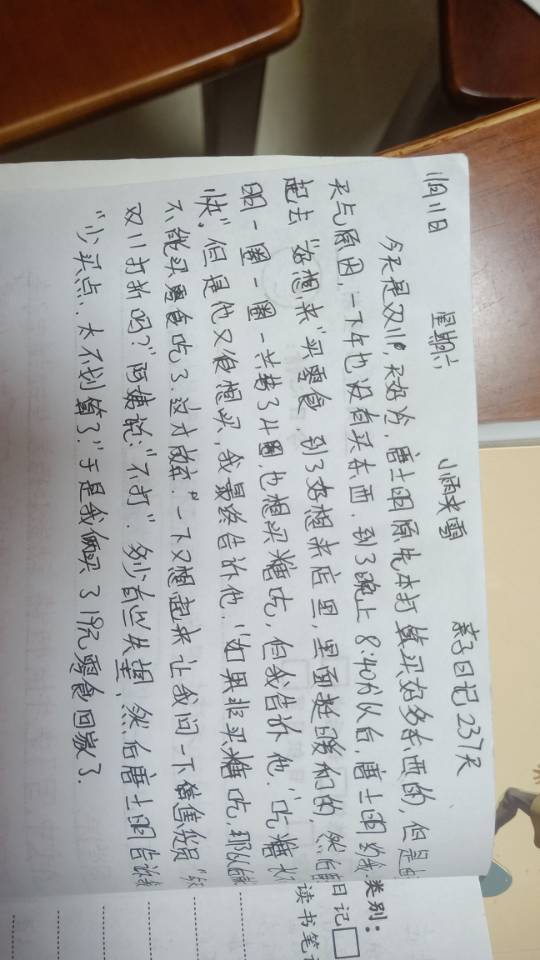 11月11日 星期六 小雨夹雪 亲子日记237天
今天是双11,天好冷,唐士明原先本打算买好多东西的,但是
天气原因,一下午也没有买东西.到了晚上8:40分以后,唐士明约我
起去"好想来"买零食,到了好想来店里,里面挺暖和的,然后
明一圈一圈一共转了4圈,也想买糖吃,但我告诉他."吃糖
快".但是他又很想买,我最终告诉他."如果非买糖吃,那以后
不能买零食吃了.这才放弃.一下又想起来让我问一下售货员
双11打折吗?"阿姨说:"不打".多少有些失望,然后唐士明告诉
"少买点,太不划算了."于是我俩买了19元零食回家了.
类别:
日记
读书笔